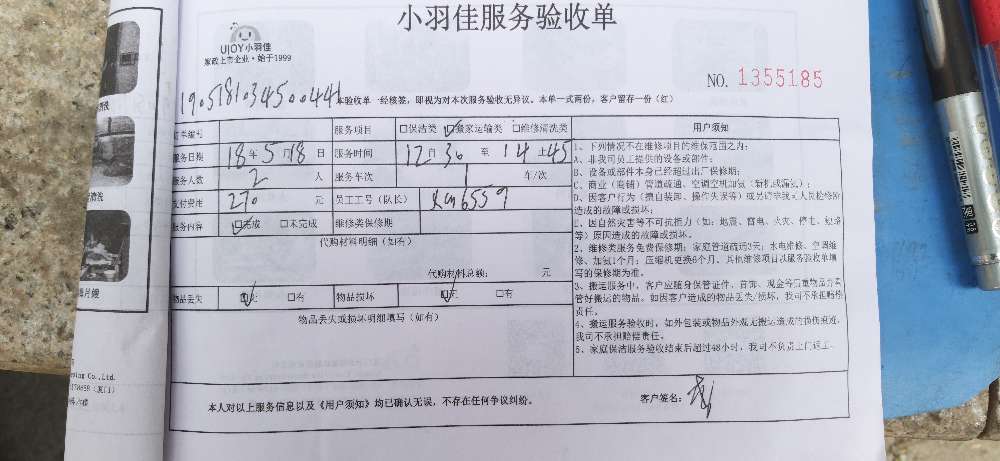 小羽佳服务验收单
UJOY小羽佳
家政上市企业·始于1999
NO. 1355185
190518103450044
本验收单一经核签，即视为对本次服务验收无异议。本单一式两份，客户留存一份（红）
订单编号 服务项目 □保洁类 ☑搬家运输类 □维修清洗类 用户须知
服务日期 18年5月18日 服务时间 12 30 至 14 45
服务人数 2 人 服务车次 1 车/次
支付费用 270 元 员工工号（队长） 6559
服务内容 ☑完成 □未完成 维修类保修期
代购材料明细（如有）
代购材料总额： 元
物品丢失 ☑无 □有 物品损坏 ☑无 □有
物品丢失或损坏明细填写（如有）
1、下列情况不在维修项目的维保范围之内：
A、非我司员工提供的设备或部件；
B、设备或部件本身已经过出厂保修期；
C、商业（店铺）管道疏通、空调空机加氨（新机或漏氨）；
D、因客户行为（擅自装卸、操作失误等）或另请非我司人员检修所
造成的故障或损坏；
E、因自然灾害等不可抗拒力（如：地震、雷电、火灾、停电、短路
等）原因造成的故障或损坏。
2、维修类服务免费保修期：家庭管道疏通3天；水电维修、空调维
修、加氨1个月；压缩机更换6个月。其他维修项目以服务验收单填
写的保修期为准。
3、搬运服务中，客户应随身保管证件、首饰、现金等贵重物品并看
管好搬运的物品。如因客户造成的物品丢失/损坏，我司不承担赔偿
责任。
4、搬运服务验收时，如外包装或物品外观无搬运造成的损伤痕迹，
我司不承担赔偿责任。
5、家庭保洁服务验收结束后超过48小时，我司不负责上门返工。
本人对以上服务信息以及《用户须知》均已确认无误，不存在任何争议纠纷。 客户签名：
Co.,Ltd.